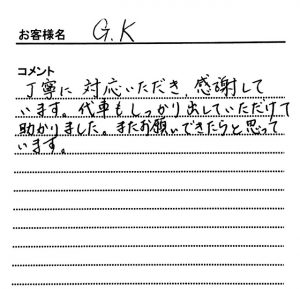 お客様名 G.K
コメント
丁寧に対応いただき、感謝して
います。代車もしっかり出していただけて
助かりました。またお願いできたらと思って
います。